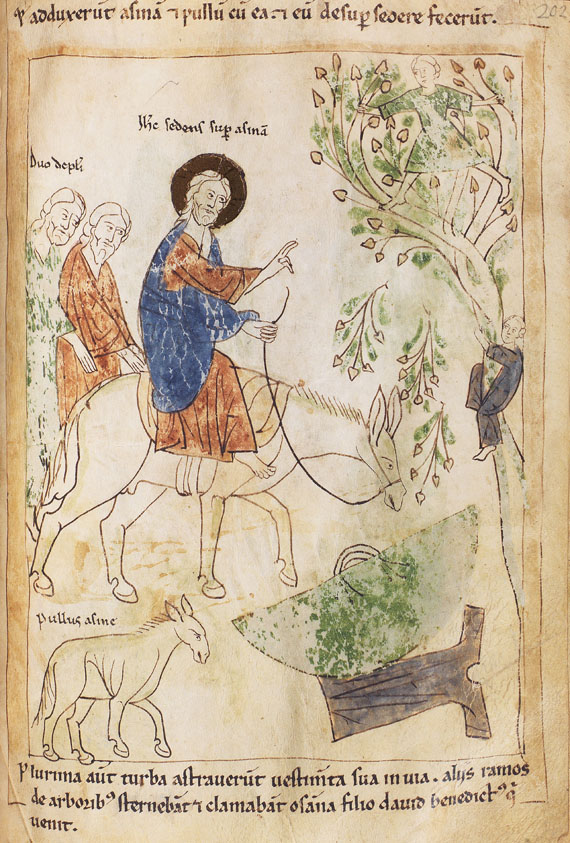 ⁊ adduxerūt asinā ⁊ pullū cū ea. ⁊ eū desup̄ sedere fecerūt.
202
Ih̄c sedens sup̄ asinā
Duo dcpl̄i
pullus asine
Plurima aūt turba astraverūt vestim̄ta sua in via. alijs ramos
de arborib⁹ sternebāt ⁊ clamabāt osāna filio david benedict⁹ q̄
venit.